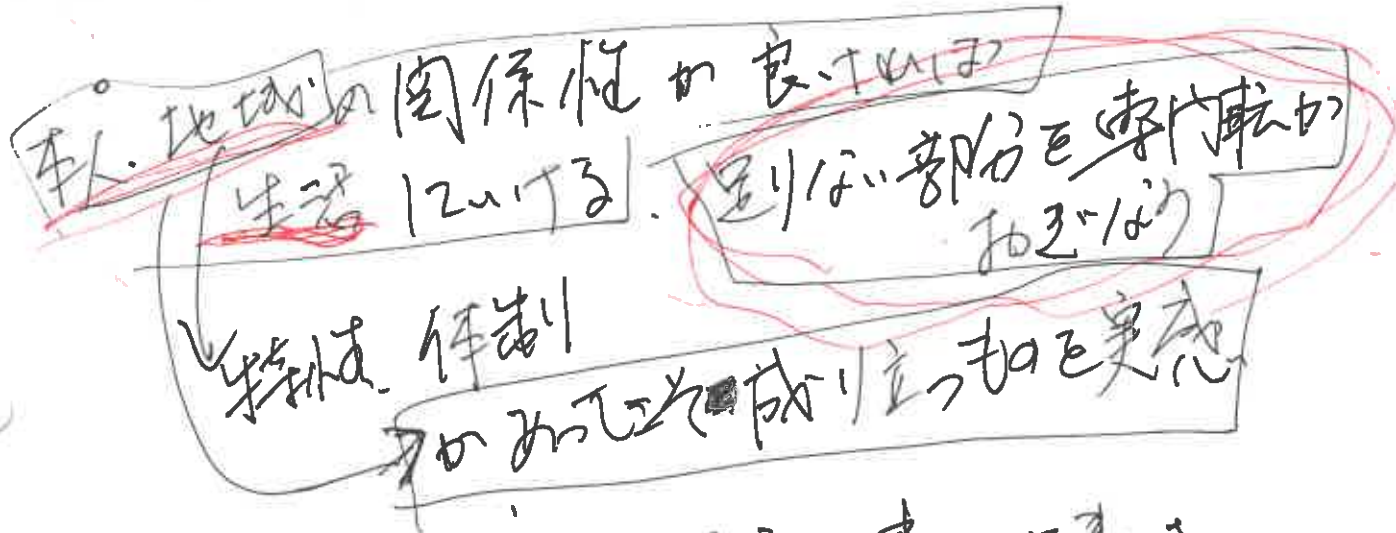 本人・地域の関係性が良ければ
生活していける。足りない部分を専門職が
おぎなう
特性、体制
があってこそ成り立つものを実感